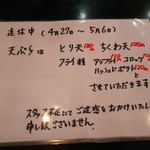 連休中（4月27日〜5月6日）
天ぷらは とり天 ちくわ天
フライ類 アジフライ コロッケ
ハッシュドポテト と
させていただきます
スタッフ不足にてご迷惑をおかけいたし
申し訳ございません。